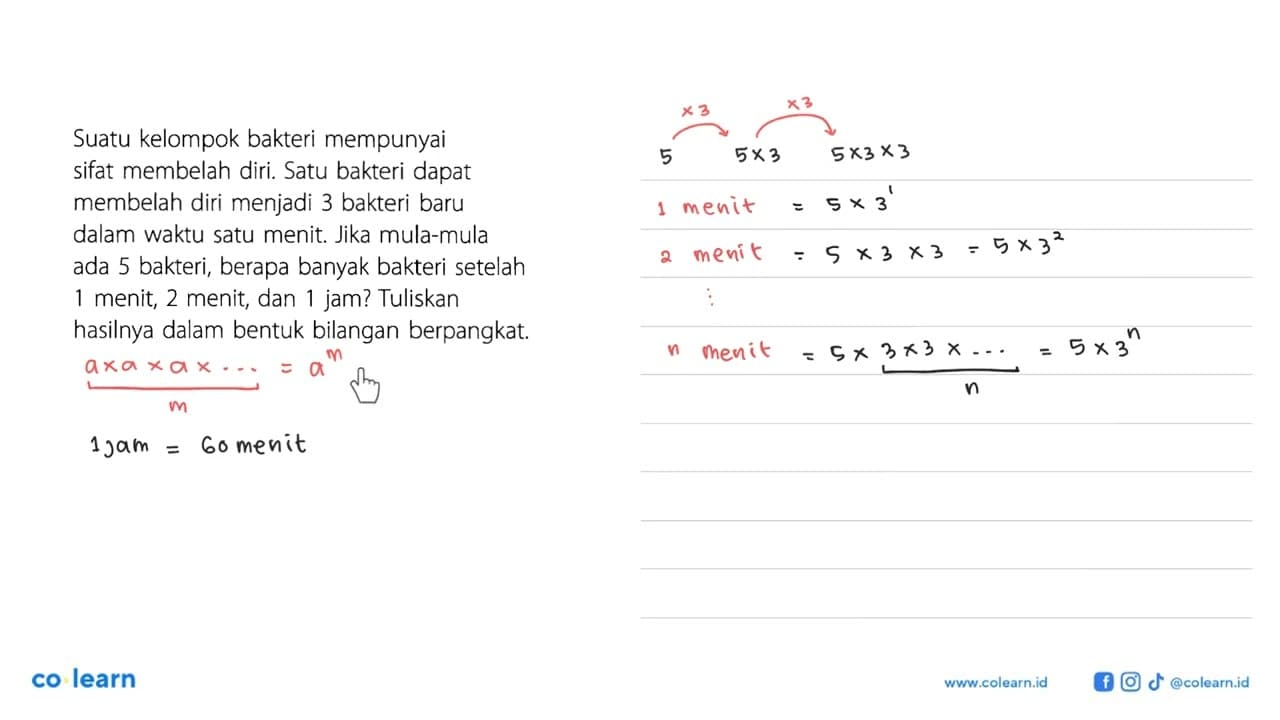 Suatu kelompok bakteri mempunyai
sifat membelah diri. Satu bakteri dapat
membelah diri menjadi 3 bakteri baru
dalam waktu satu menit. Jika mula-mula
ada 5 bakteri, berapa banyak bakteri setelah
1 menit, 2 menit, dan 1 jam? Tuliskan
hasilnya dalam bentuk bilangan berpangkat.
a×a×a×... = a^m
m
1 jam = 60 menit
×3 ×3
5 5×3 5×3×3
1 menit = 5 × 3^1
2 menit = 5 × 3 × 3 = 5 × 3^2
⋮
n menit = 5 × 3×3 × ... = 5 × 3^n
n
co learn
www.colearn.id @colearn.id